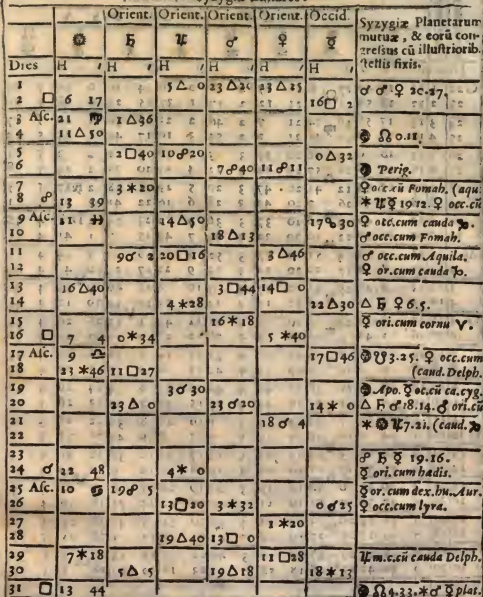 Orient. Orient. Orient. Orient. Occid.
☉ ♄ ♃ ♂ ♀ ☿ Syzygiæ Planetarum
mutuæ, & eorū con-
gressus cū illustriorib.
stellis fixis.
Dies H ′ H ′ H H H H
1 5 △ 0 23 △ 20 23 △ 25 ♂ ♂ ♀ 20.27.
2 □ 6 17 16 □ 2
3 Asc. 21 ♍ 1 △ 36
4 11 △ 50 ☊ 0.11.
5 2 □ 40 10 ☍ 20 0 △ 32
6 7 ☍ 40 11 ☍ 11 Perig.
7 3 * 20 ♀ occ. cū Fomah. (aqu:
8 ☍ 13 39 * ♃ ☿ 19.12. ♀ occ. cū
9 Asc. 11 ♓ 14 △ 50 17 ☍ 30 ♀ occ. cum cauda ♑.
10 18 △ 13 ♂ occ. cum Fomah.
11 9 ☌ 2 20 □ 16 3 △ 46 ♂ occ. cum Aquila.
12 ♀ or. cum cauda ♑.
13 16 △ 40 3 □ 44 14 □ 0
14 4 * 28 22 △ 30 △ ♄ ♀ 6.5.
15 16 * 18 ☿ ori. cum cornu ♈.
16 □ 7 4 0 * 34 5 * 40
17 Asc. 9 ♎ 17 □ 46 ☋ 3.25. ♀ occ. cum
18 23 * 46 11 □ 27 (caud. Delph.
19 3 ☌ 30 Apo. ☿ oc. cū ca. cyg.
20 23 △ 0 23 ☌ 20 14 * 0 △ ♄ ♂ 18.14. ♂ ori. cū
21 18 ☌ 4 * ☉ ♃ 7.21. (caud. ♑
22
23 ☍ ♄ ☿ 19.16.
24 ☌ 22 48 4 * 0 ☿ ori. cum hædis.
25 Asc. 10 ♋ 19 ☍ 5 ☿ or. cum dex. hu. Aur.
26 13 □ 20 3 * 32 0 ☌ 25 ♀ occ. cum lyra.
27 1 * 20
28 19 △ 40 13 □ 0
29 7 * 18 11 □ 28 ♃ m. c. cū cauda Delph.
30 5 △ 5 19 △ 18 18 * 13
31 □ 13 44 ☊ 4.33. * ♂ ☿ plat.